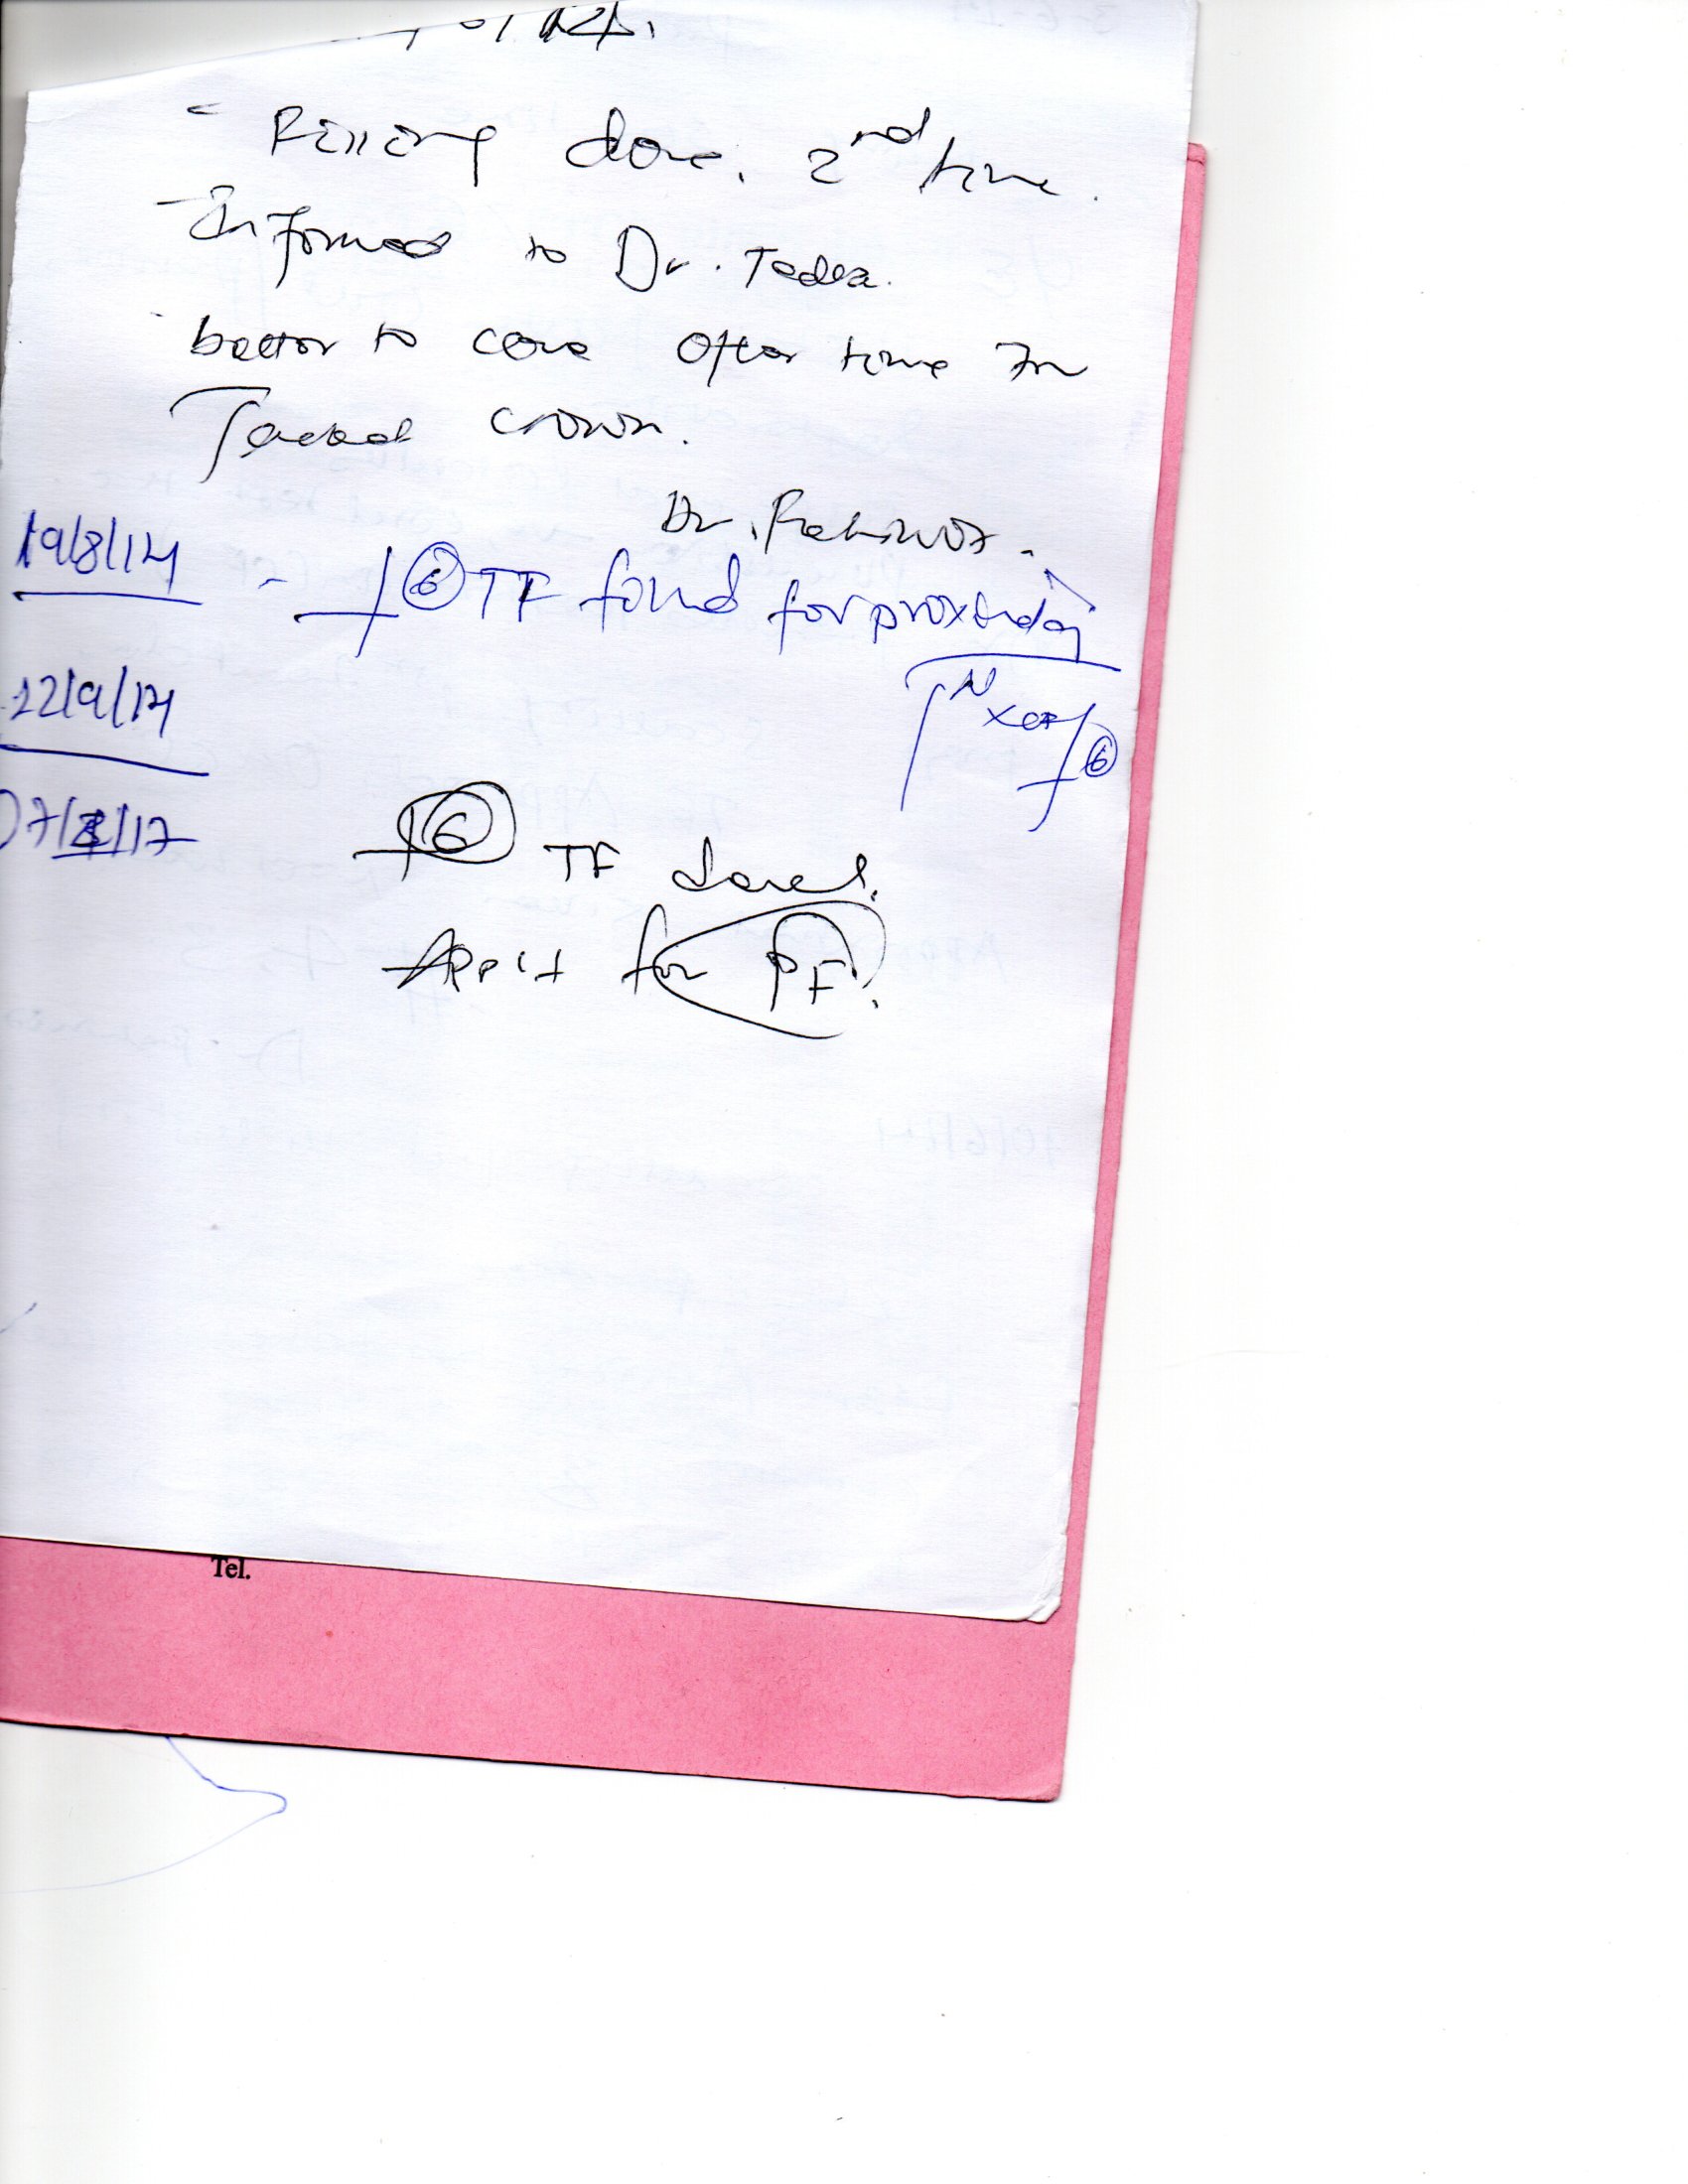 - Filling done. 2nd time.
- Informed to Dr. Tedla.
- better to come after time for
Jacket crown.
Dr.
19/8/14 - 6 TF found for proxenday
22/9/14
Xray 6
07/8/17
6 TF done.
App't for PF.
Tel.